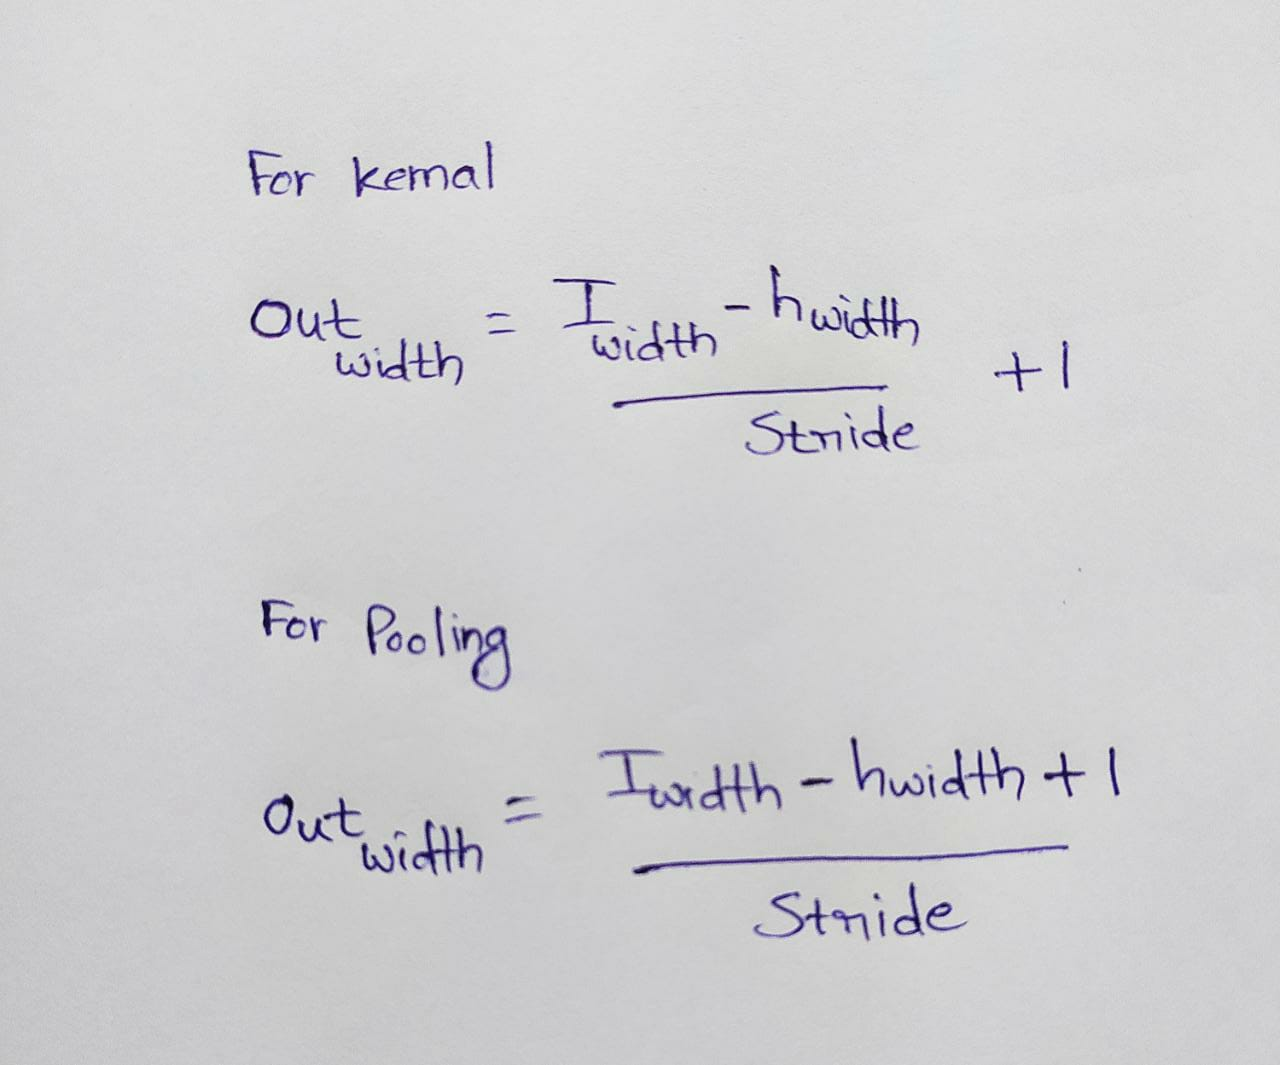 For kernal
Out width = I width - hwidth / Stride + 1
For Pooling
Out width = Iwidth - hwidth + 1 / Stride